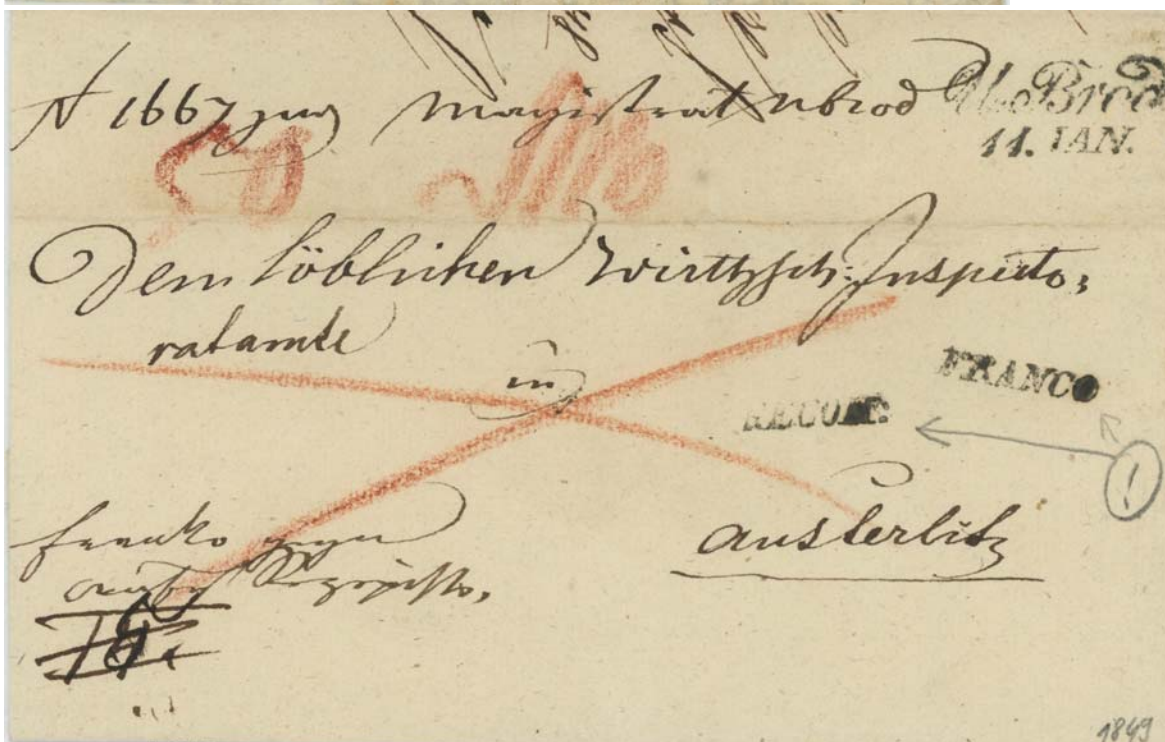 N 1667 Magistrat Ubrod U. Brod
11. IAN.
Dem löblichen Wirthsch: Inspecto,
ratamte
in
FRANCO
RECOM:
!
Austerlitz
franko gegen
1849